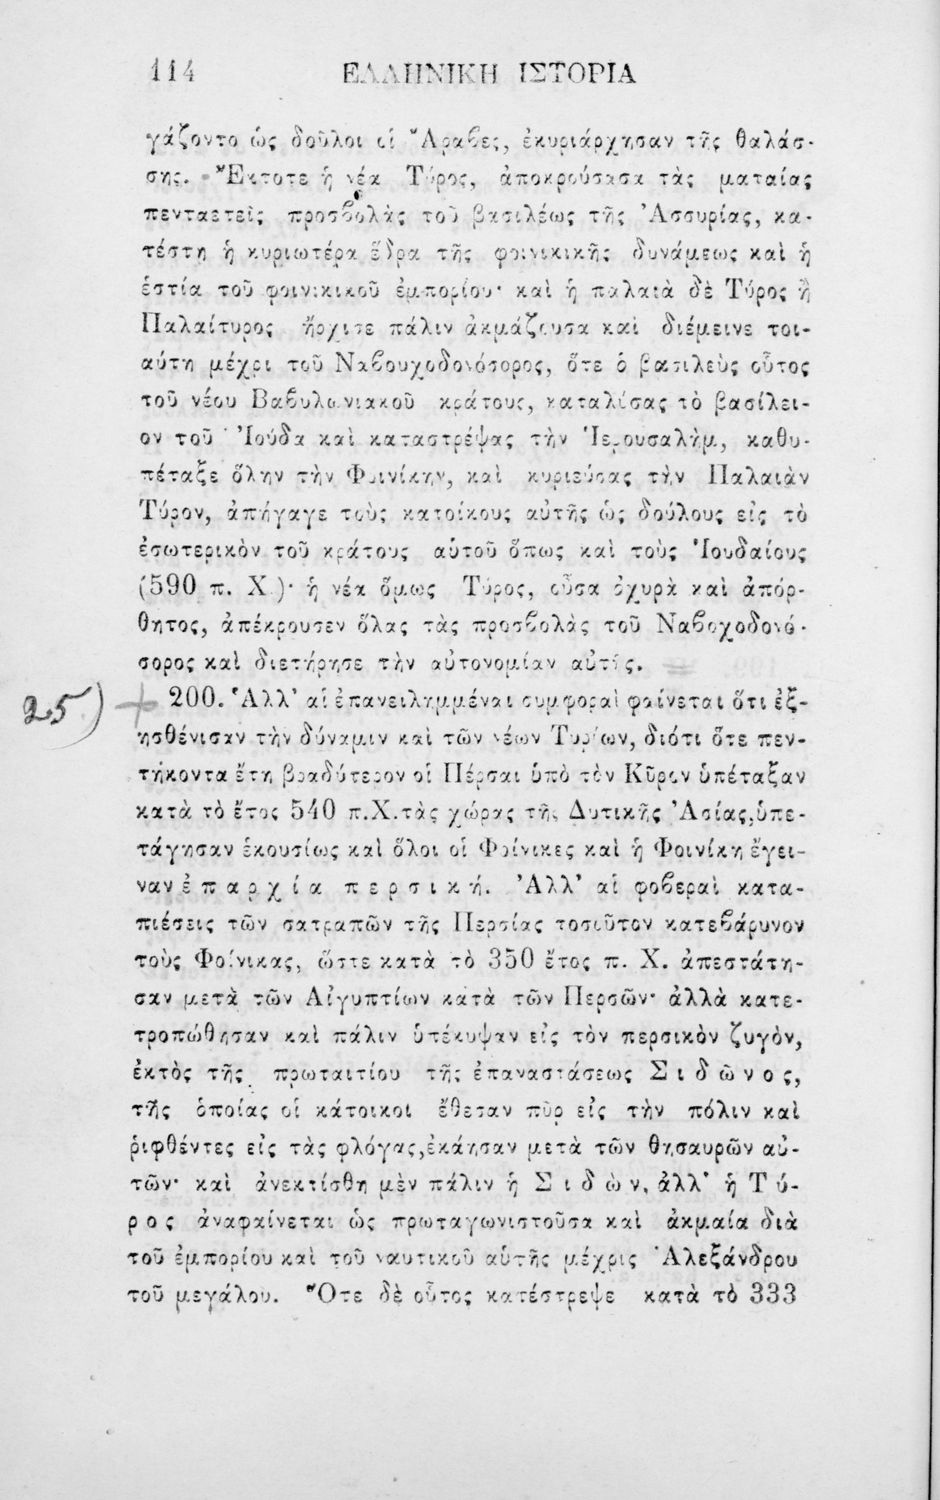 114 ΕΛΛΗΝΙΚΗ ΙΣΤΟΡΙΑ
γάζοντο ὡς δοῦλοι οἱ Ἄραβες, ἐκυριάρχησαν τῆς θαλάσ-
σης. Ἔκτοτε ἡ νέα Τύρος, ἀποκρούσασα τὰς ματαίας
πενταετεῖς προσβολὰς τοῦ βασιλέως τῆς Ἀσσυρίας, κα-
τέστη ἡ κυριωτέρα ἕδρα τῆς φοινικικῆς δυνάμεως καὶ ἡ
ἑστία τοῦ φοινικικοῦ ἐμπορίου· καὶ ἡ παλαιὰ δὲ Τύρος ἢ
Παλαίτυρος ἤρχισε πάλιν ἀκμάζουσα καὶ διέμεινε τοι-
αύτη μέχρι τοῦ Ναβουχοδονόσορος, ὅτε ὁ βασιλεὺς οὗτος
τοῦ νέου Βαβυλωνιακοῦ κράτους, καταλύσας τὸ βασίλει-
ον τοῦ Ἰούδα καὶ καταστρέψας τὴν Ἱερουσαλὴμ, καθυ-
πέταξε ὅλην τὴν Φοινίκην, καὶ κυριεύσας τὴν Παλαιὰν
Τύρον, ἀπήγαγε τοὺς κατοίκους αὐτῆς ὡς δούλους εἰς τὸ
ἐσωτερικὸν τοῦ κράτους αὑτοῦ ὅπως καὶ τοὺς Ἰουδαίους
(590 π. Χ.)· ἡ νέα ὅμως Τύρος, οὖσα ὀχυρὰ καὶ ἀπόρ-
θητος, ἀπέκρουσεν ὅλας τὰς προσβολὰς τοῦ Ναβοχοδονό-
σορος καὶ διετήρησε τὴν αὐτονομίαν αὑτῆς.
25) + 200. Ἀλλ' αἱ ἐπανειλημμέναι συμφοραὶ φαίνεται ὅτι ἐξ-
ησθένισαν τὴν δύναμιν καὶ τῶν νέων Τυρίων, διότι ὅτε πεν-
τήκοντα ἔτη βραδύτερον οἱ Πέρσαι ὑπὸ τὸν Κῦρον ὑπέταξαν
κατὰ τὸ ἔτος 540 π.Χ. τὰς χώρας τῆς Δυτικῆς Ἀσίας, ὑπε-
τάγησαν ἑκουσίως καὶ ὅλοι οἱ Φοίνικες καὶ ἡ Φοινίκη ἔγει-
ναν ἐπαρχία περσική. Ἀλλ' αἱ φοβεραὶ κατα-
πιέσεις τῶν σατραπῶν τῆς Περσίας τοσοῦτον κατεβάρυνον
τοὺς Φοίνικας, ὥστε κατὰ τὸ 350 ἔτος π. Χ. ἀπεστάτη-
σαν μετὰ τῶν Αἰγυπτίων κατὰ τῶν Περσῶν· ἀλλὰ κατε-
τροπώθησαν καὶ πάλιν ὑπέκυψαν εἰς τὸν περσικὸν ζυγὸν,
ἐκτὸς τῆς πρωταιτίου τῆς ἐπαναστάσεως Σιδῶνος,
τῆς ὁποίας οἱ κάτοικοι ἔθεσαν πῦρ εἰς τὴν πόλιν καὶ
ῥιφθέντες εἰς τὰς φλόγας, ἐκάησαν μετὰ τῶν θησαυρῶν αὑ-
τῶν· καὶ ἀνεκτίσθη μὲν πάλιν ἡ Σιδὼν, ἀλλ' ἡ Τύ-
ρος ἀναφαίνεται ὡς πρωταγωνιστοῦσα καὶ ἀκμαία διὰ
τοῦ ἐμπορίου καὶ τοῦ ναυτικοῦ αὑτῆς μέχρις Ἀλεξάνδρου
τοῦ μεγάλου. Ὅτε δὲ οὗτος κατέστρεψε κατὰ τὸ 333